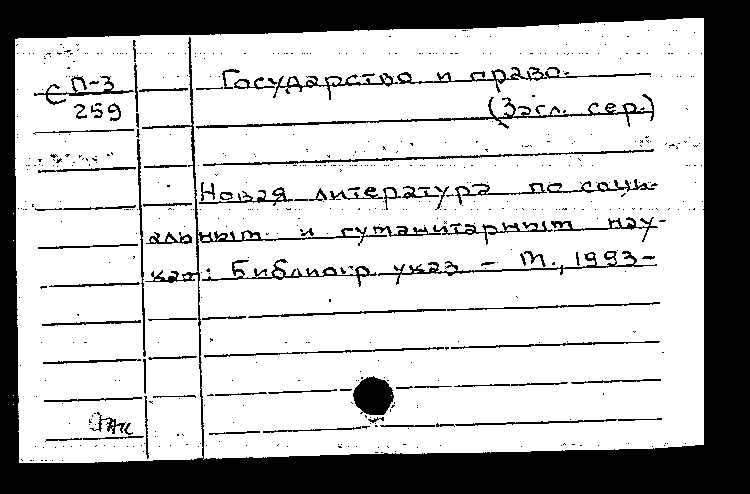 С П-3
259
Государство и право.
(Загл. сер.)
Новая литература по соци-
альным и гуманитарным нау-
кам: Библиогр. указ. – М., 1993–